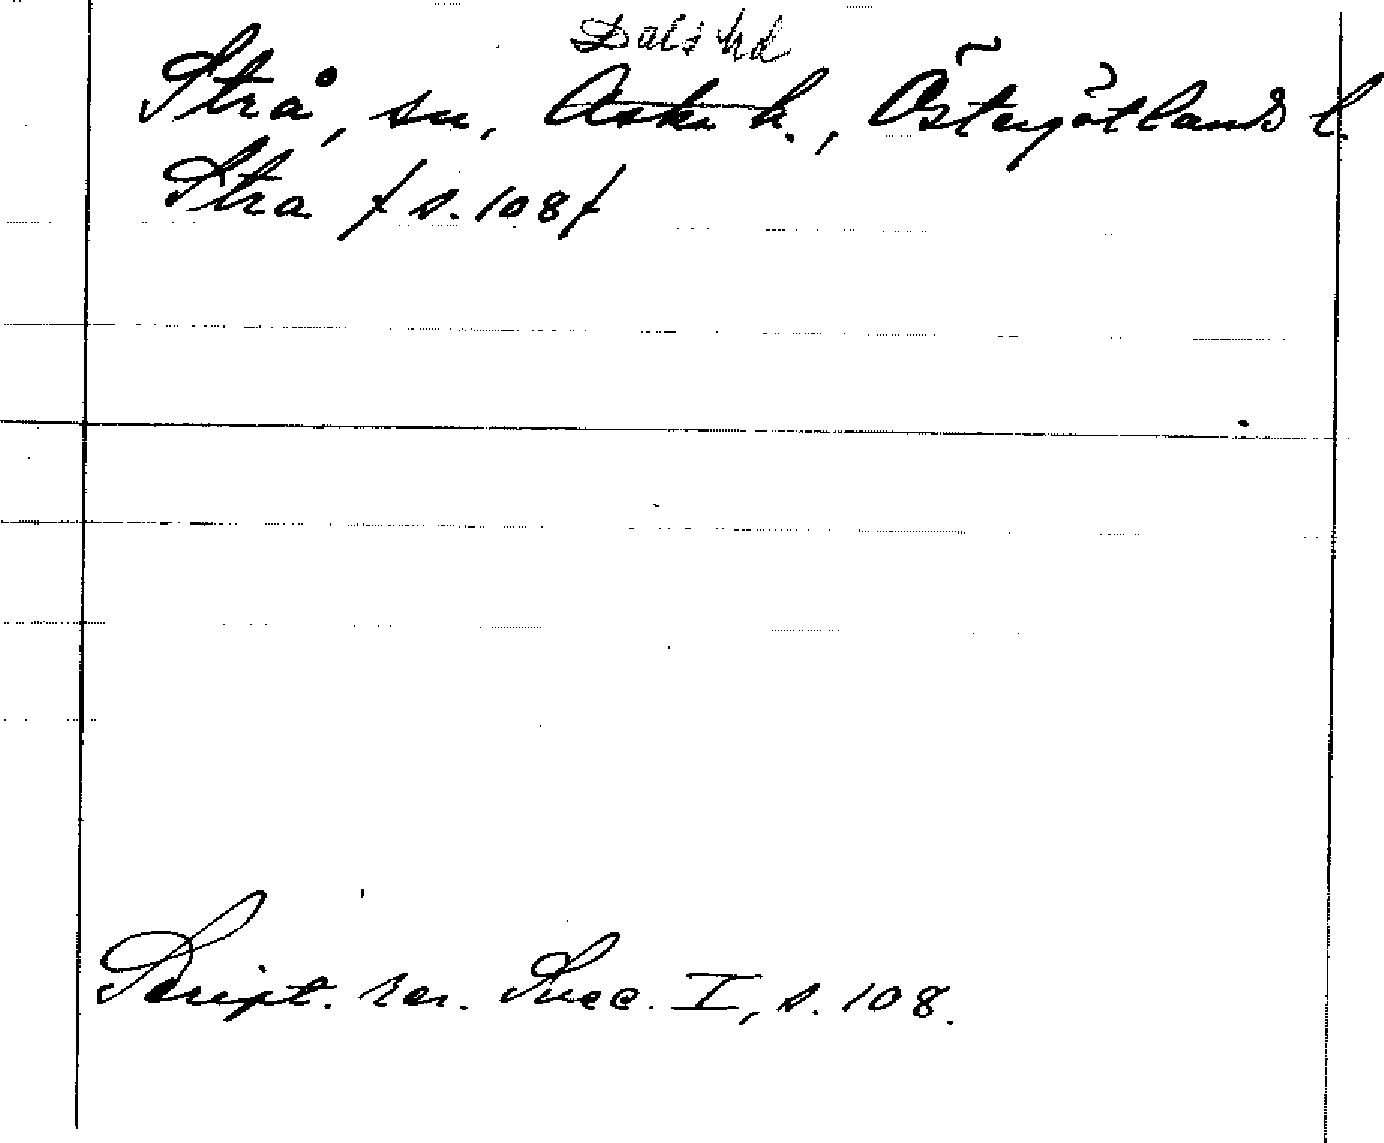 Dals hd
Strå, sn, Aska h., Östergötlands l.
Stra / s. 108 /
Script. rer. Svec. I, s. 108.